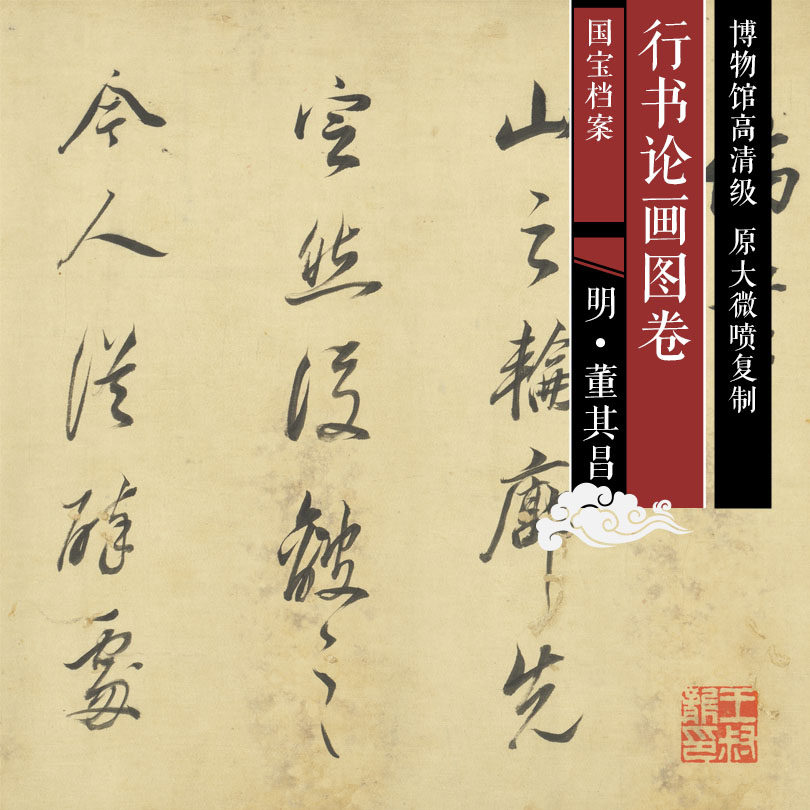 博物馆高清级 原大微喷复制
行书论画图卷
国宝档案
明·董其昌
山之輪廓先
定然後皴之
今人從碎處